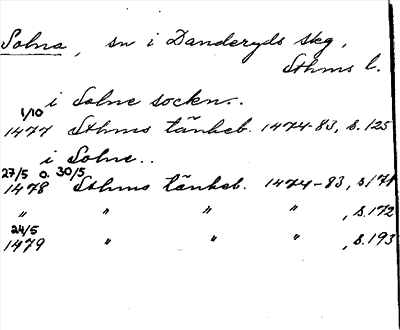 Solna, sn i Danderyds skg,
Sthms l.
i Solne socken..
1/10
1477 Sthms tänkeb. 1474-83, s. 125
i Solne..
27/5 o. 30/5
1478 Sthms tänkeb. 1474-83, s 171
" " " " , s. 172
24/5
1479 " " " , s. 193